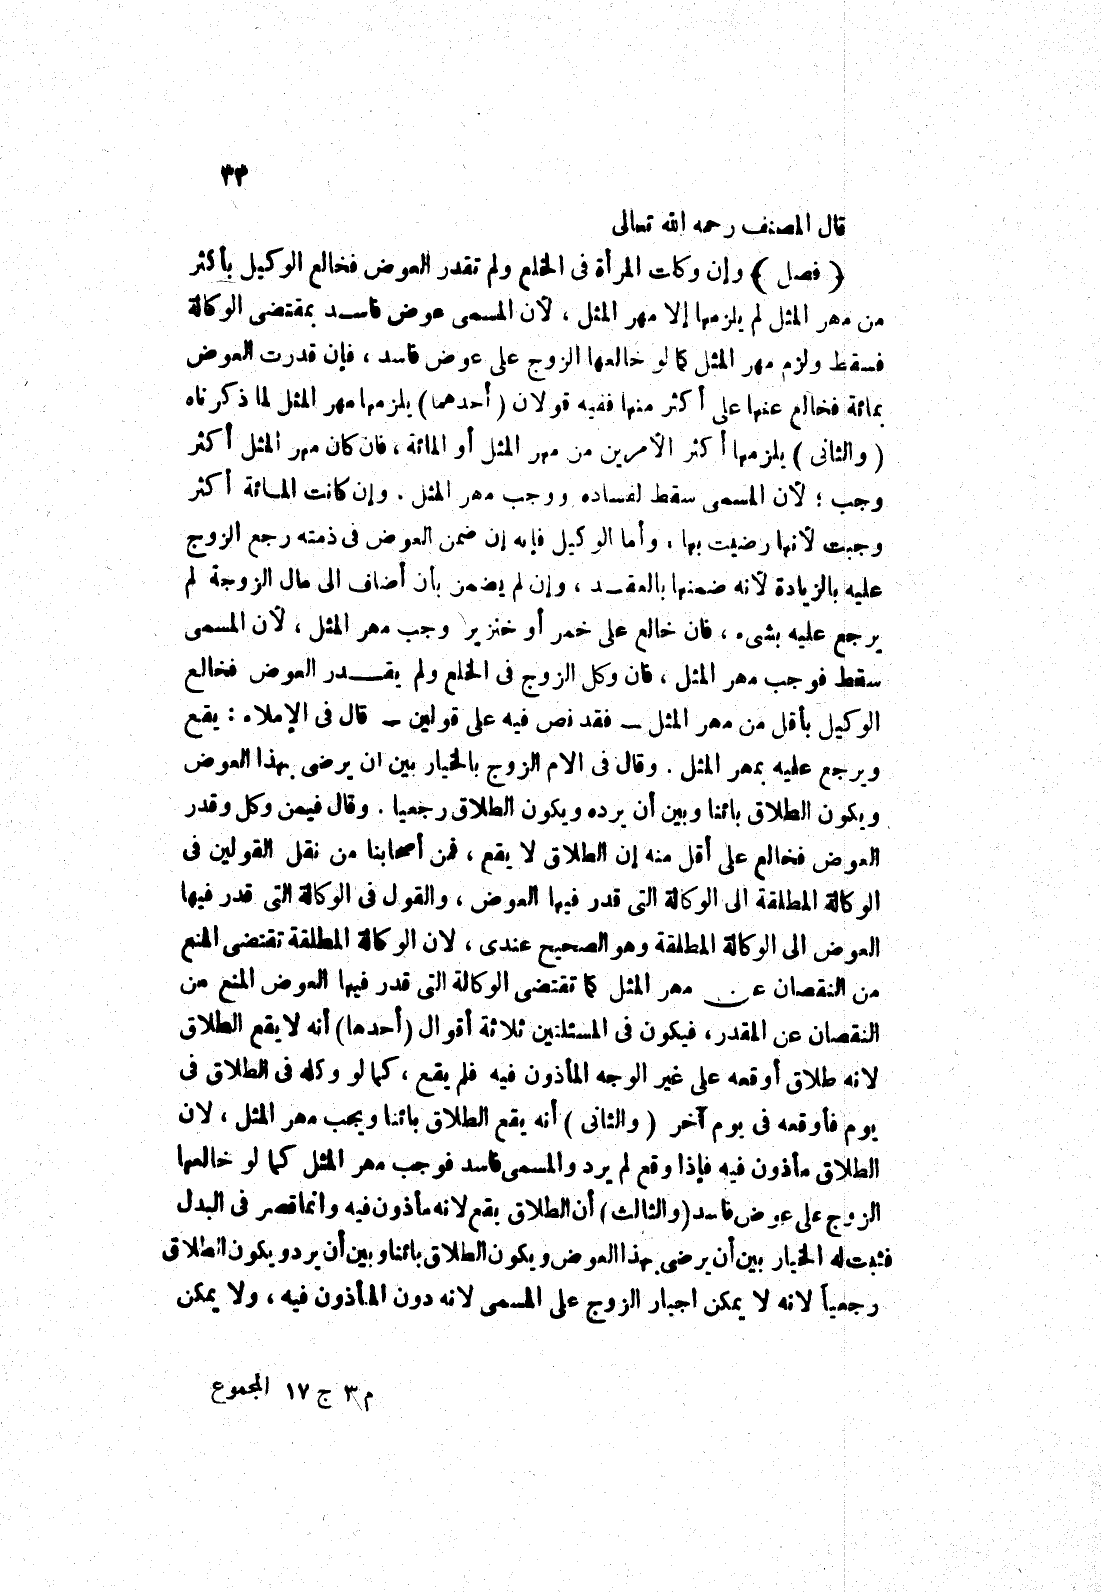 ٣٣
قال المصنف رحمه الله تعالى
﴿ فصل ﴾ وإن وكلت المرأة فى الخلع ولم تقدر العوض فخالع الوكيل بأكثر
من مهر المثل لم يلزمها إلا مهر المثل ، لأن المسمى عوض فاسـد بمقتضى الوكالة
فسقط ولزم مهر المثل كما لو خالعها الزوج على عوض فاسد ، فإن قدرت العوض
بمائة فخالع عنها على أكثر منها ففيه قولان ( أحدهما ) يلزمها مهر المثل لما ذكرناه
( والثانى ) يلزمها أكثر الأمرين من مهر المثل أو المائة ، فان كان مهر المثل أكثر
وجب ؛ لأن المسمى سقط لفساده ووجب مهر المثل . وإن كانت المـائة أكثر
وجبت لأنها رضيت بها . وأما الوكيل فإنه إن ضمن العوض فى ذمته رجع الزوج
عليه بالزيادة لأنه ضمنها بالعقـد ، وإن لم يضمن بأن أضاف الى مال الزوجة لم
يرجع عليه بشىء ، فان خالع على خمر أو خنزير وجب مهر المثل ، لأن المسمى
سقط فوجب مهر المثل ، فان وكل الزوج فى الخلع ولم يقـــدر العوض فخالع
الوكيل بأقل من مهر المثل ــ فقد نص فيه على قولين ــ قال فى الإملاء : يقع
ويرجع عليه بمهر المثل . وقال فى الام الزوج بالخيار بين ان يرضى بهذا العوض
ويكون الطلاق بائنا وبين أن يرده ويكون الطلاق رجعيا . وقال فيمن وكل وقدر
العوض فخالع على أقل منه إن الطلاق لا يقع ، فمن أصحابنا من نقل القولين فى
الوكالة المطلقة الى الوكالة التى قدر فيها العوض ، والقول فى الوكالة التى قدر فيها
العوض الى الوكالة المطلقة وهو الصحيح عندى ، لان الوكالة المطلقة تقتضى المنع
من النقصان عن مهر المثل كما تقتضى الوكالة التى قدر فيها العوض المنع من
النقصان عن المقدر، فيكون فى المسئلتين ثلاثة أقوال (أحدها) أنه لا يقع الطلاق
لانه طلاق أوقعه على غير الوجه المأذون فيه فلم يقع ، كما لو وكله فى الطلاق فى
يوم فأوقعه فى يوم آخر ( والثانى ) أنه يقع الطلاق بائنا ويجب مهر المثل ، لان
الطلاق مأذون فيه فإذا وقع لم يرد والمسمى فاسد فوجب مهر المثل كما لو خالعها
الزوج على عوض فاسد (والثالث) أن الطلاق يقع لانه مأذون فيه وانما قصر فى البدل
فثبت له الخيار بين أن يرضى بهذا العوض ويكون الطلاق بائنا وبين أن يرد ويكون الطلاق
رجعياً لانه لا يمكن اجبار الزوج على المسمى لانه دون المأذون فيه ، ولا يمكن
م ٣ ج ١٧ المجموع